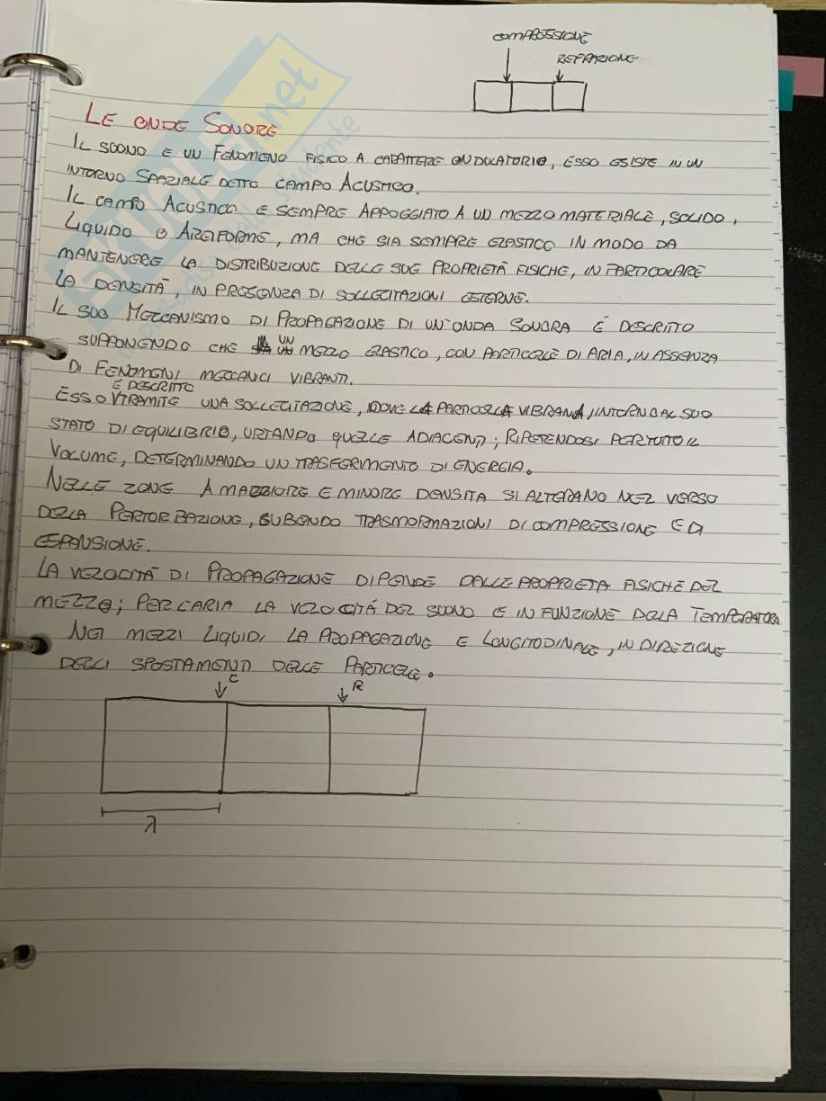 COMPRESSIONE
REFRAZIONE
LE ONDE SONORE
IL SUONO E UN FENOMENO FISICO A CARATTERE ONDULATORIO, ESSO ESISTE IN UN
INTORNO SPAZIALE DETTO CAMPO ACUSTICO.
IL CAMPO ACUSTICO E SEMPRE APPOGGIATO A UN MEZZO MATERIALE, SOLIDO,
LIQUIDO O AREIFORME, MA CHE SIA SEMPRE ELASTICO IN MODO DA
MANTENERE LA DISTRIBUZIONE DELLE SUE PROPRIETÀ FISICHE, IN PARTICOLARE
LA DENSITÀ, IN PRESENZA DI SOLLECITAZIONI ESTERNE.
IL SUO MECCANISMO DI PROPAGAZIONE DI UN'ONDA SONORA È DESCRITTO
SUPPONENDO CHE UN MEZZO ELASTICO, CON PARTICELLE DI ARIA, IN ASSENZA
DI FENOMENI MECCANICI VIBRANTI.
ESSO È DESCRITTO TRAMITE UNA SOLLECITAZIONE, DOVE LA PARTICELLA VIBRANA, INTORNO AL SUO
STATO DI EQUILIBRIO, URTANDO QUELLE ADIACENTI; RIPETENDOSI PER TUTTO IL
VOLUME, DETERMINANDO UN TRASFERIMENTO DI ENERGIA.
NELLE ZONE A MAGGIORE E MINORE DENSITA SI ALTERANO NEL VERSO
DELLA PERTORBAZIONE, SUBENDO TRASMORMAZIONI DI COMPRESSIONE E DI
ESPANSIONE.
LA VELOCITÀ DI PROPAGAZIONE DIPENDE DALLE PROPRIETA FISICHE DEL
MEZZO; PER L'ARIA LA VELOCITÁ DEL SUONO E IN FUNZIONE DELLA TEMPERATURA
NEI MEZZI LIQUIDI LA PROPAGAZIONE E LONGITODINALE, IN DIREZIONE
DEGLI SPOSTAMENTI DELLE PARTICELLE.
C
R
λ